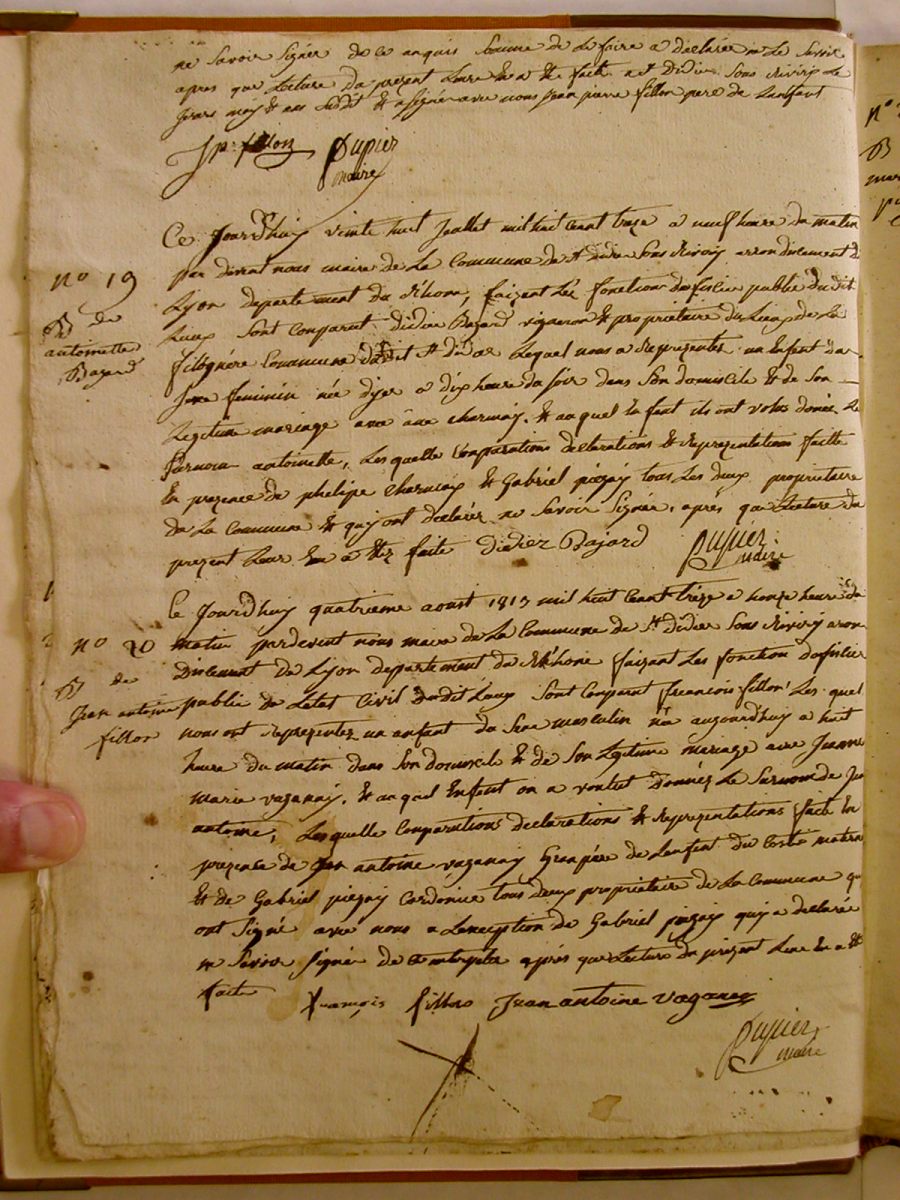 ne Savoir Signer de ce anquis Somme de Le faire a déclarée ne Le Savoir
apres que Lecture du present Leure En a Eté faite a St Didier Sous Rivirie Le
Jours mois & ans Sudit & a Signée avec nous Jean pierre fillon pere de Lenfant
Jp. fillon
Dupier
maire
no 19
B de
antoinette
Bajard
Ce Jourd'huy vinte huit Juallet mil huit Cent treze a neuf heure du matin
par devent nous maire de La Commune de St Didier Sous Rivoiry arron dicement de
Lyon departement du Rhone, faizant Les fonction dofficier public du dit
Lieux Sont Comparut didier Bajard vigneron & propriétaire du Lieux de La
Commune dudit St didier Lequel nous a Représentée un Enfant du
Sexe feminin née dyer a dix heure du soir dans Son domicile & de Son
Legitime mariage avec charmay. & auquel Enfant ils ont voulu donée Le
Surnom antoinette, Les quelle Comparutions declarations & représentations faitte
En presence de phelipe charmay & Gabriel piegay tous Les deux proprietaire
de La Commune & quy ont declarée ne Savoir Signée, après que Lecture du
present Leur En a Etez faite didier Bajard
Dupier
maire
no 20
B de
Jean antoine
fillon
Ce Jourd'huy quatrieme aoust 1813 mil huit Cent treze a honze heure du
matin pardevent nous maire de La Commune de St Didier Sous Riviry aron
Dicement de Lyon departement du Rhône faizant Les fonction dofficier
public de Letat Civil dudit Lieux Sont Comparut francois fillon Les quel
nous ont représentez un enfant du Sexe masculin née aujourdhuy a huit
heure du matin dans Son domicile & de Son Legitime mariage avec Jeanne
marie vaganay. & auquel Enfant on a voulut Donnéz Le Surnom de Jean
antoine, Les quelle Comparutions declarations & représentations fait En
presence de Jean antoine vaganay Grand père de Lenfant du Costé maternel
& de Gabriel piegay Cordonier tous deux propriétaire de La Commune qui
ont Signé avec nous a Lexception de Gabriel piegay quy a declarée
ne Savoir Signée de après que Lecture du présent Leure En a Eté
faite
francois fillon Jean antoine vaganay
Dupier
maire